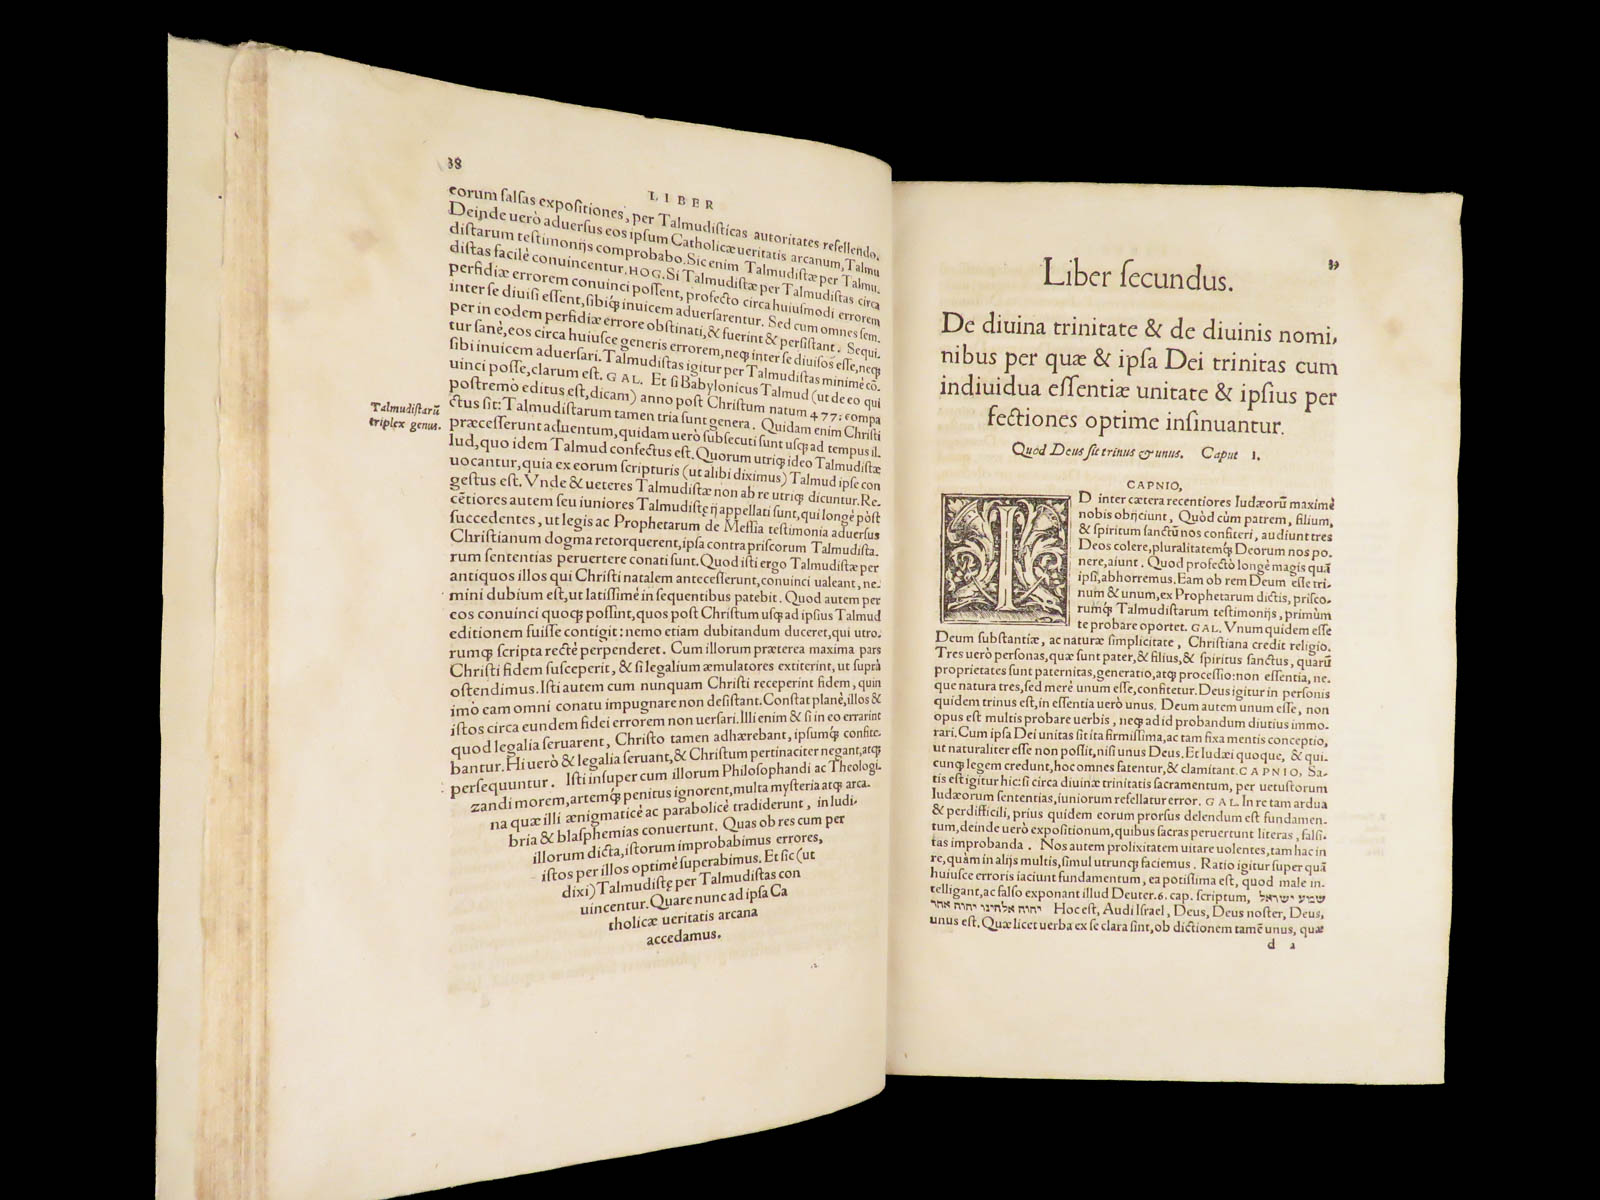 38
LIBER
eorum falsas expositiones, per Talmudisticas autoritates refellendo.
Deinde uerò aduersus eos ipsum Catholicæ ueritatis arcanum, Talmu
distarum testimonijs comprobabo. Sic enim Talmudistæ per Talmu-
distas facilè conuincentur. HOG. Si Talmudistæ per Talmudistas circa
perfidiæ errorem conuinci possent, profecto circa huiusmodi errorem
inter se diuisi essent, sibiq́; inuicem aduersarentur. Sed cum omnes sem-
per in eodem perfidiæ errore obstinati, & fuerint & persistant. Sequi-
tur sanè, eos circa huiusce generis errorem, neq; inter se diuisos esse, neq;
sibi inuicem aduersari. Talmudistas igitur per Talmudistas minimè cō-
uinci posse, clarum est. GAL. Et si Babylonicus Talmud (ut de eo qui
postremò editus est, dicam) anno post Christum natum 477: compa
ctus sit: Talmudistarum tamen tria sunt genera. Quidam enim Christi
præcesserunt aduentum, quidam uerò subsecuti sunt usq; ad tempus il-
lud, quo idem Talmud confectus est. Quorum utriq; ideo Talmudistæ
uocantur, quia ex eorum scripturis (ut alibi diximus) Talmud ipse con
gestus est. Vnde & ueteres Talmudistæ non ab re utriq; dicuntur. Re-
cētiores autem seu iuniores Talmudistę ij appellati sunt, qui longè pòst
succedentes, ut legis ac Prophetarum de Messia testimonia aduersus
Christianum dogma retorquerent, ipsa contra priscorum Talmudista-
rum sententias peruertere conati sunt. Quod isti ergo Talmudistæ per
antiquos illos qui Christi natalem antecesserunt, conuinci ualeant, ne-
mini dubium est, ut latissimè in sequentibus patebit. Quod autem per
eos conuinci quoq; possint, quos post Christum usq; ad ipsius Talmud
editionem fuisse contigit: nemo etiam dubitandum duceret, qui utro-
rumq; scripta rectè perpenderet. Cum illorum præterea maxima pars
Christi fidem susceperit, & si legalium æmulatores extiterint, ut suprà
ostendimus. Isti autem cum nunquam Christi receperint fidem, quin
imò eam omni conatu impugnare non desistant. Constat planè, illos &
istos circa eundem fidei errorem non uersari. Illi enim & si in eo errarint
quod legalia seruarent, Christo tamen adhærebant, ipsumq́; confite-
bantur. Hi uerò & legalia seruant, & Christum pertinaciter negant, atq;
persequuntur. Isti insuper cum illorum Philosophandi ac Theologi-
zandi morem, artemq́; penitus ignorent, multa mysteria atq; arca-
na quæ illi ænigmaticè ac parabolicè tradiderunt, in ludi-
bria & blasphemias conuertunt. Quas ob res cum per
illorum dicta, istorum improbabimus errores,
istos per illos optimè superabimus. Et sic (ut
dixi) Talmudistę per Talmudistas con
uincentur. Quare nunc ad ipsa Ca
tholicæ ueritatis arcana
accedamus.
Talmudistarū
triplex genus.
39
Liber secundus.
De diuina trinitate & de diuinis nomi,
nibus per quæ & ipsa Dei trinitas cum
indiuidua essentiæ unitate & ipsius per
fectiones optime insinuantur.
Quòd Deus sit trinus & unus. Caput 1.
CAPNIO,
ID inter cætera recentiores Iudæorū maximè
nobis obijciunt, Quòd cùm patrem, filium,
& spiritum sanctū nos confiteri, audiunt tres
Deos colere, pluralitatemq́; Deorum nos po-
nere, aiunt. Quod profectò longè magis quā
ipsi, abhorremus. Eam ob rem Deum esse tri-
num & unum, ex Prophetarum dictis, prisco-
rumq́; Talmudistarum testimonijs, primùm
te probare oportet. GAL. Vnum quidem esse
Deum substantiæ, ac naturæ simplicitate, Christiana credit religio.
Tres uerò personas, quæ sunt pater, & filius, & spiritus sanctus, quarū
proprietates sunt paternitas, generatio, atq; processio: non essentia, ne-
que natura tres, sed merè unum esse, confitetur. Deus igitur in personis
quidem trinus est, in essentia uerò unus. Deum autem unum esse, non
opus est multis probare uerbis, neq; ad id probandum diutius immo-
rari. Cum ipsa Dei unitas sit ita firmissima, ac tam fixa mentis conceptio,
ut naturaliter esse non possit, nisi unus Deus. Et Iudæi quoque, & qui-
cunq; legem credunt, hoc omnes fatentur, & clamitant. CAPNIO, Sa-
tis est igitur hic: si circa diuinæ trinitatis sacramentum, per uetustorum
Iudæorum sententias, iuniorum refellatur error. GAL. In re tam ardua
& perdifficili, prius quidem eorum prorsus delendum est fundamen-
tum, deinde uerò expositionum, quibus sacras peruertunt literas, falsi-
tas improbanda. Nos autem prolixitatem uitare uolentes, tam hac in
re, quàm in alijs multis, simul utrunq; faciemus. Ratio igitur super quā
huiusce erroris iaciunt fundamentum, ea potissima est, quod male in-
telligant, ac falso exponant illud Deuter. 6. cap. scriptum, שמע ישראל
יהוה אלהינו יהוה אחד Hoc est, Audi Israel, Deus, Deus noster, Deus,
unus est. Quæ licet uerba ex se clara sint, ob dictionem tamē unus, quæ
d 2